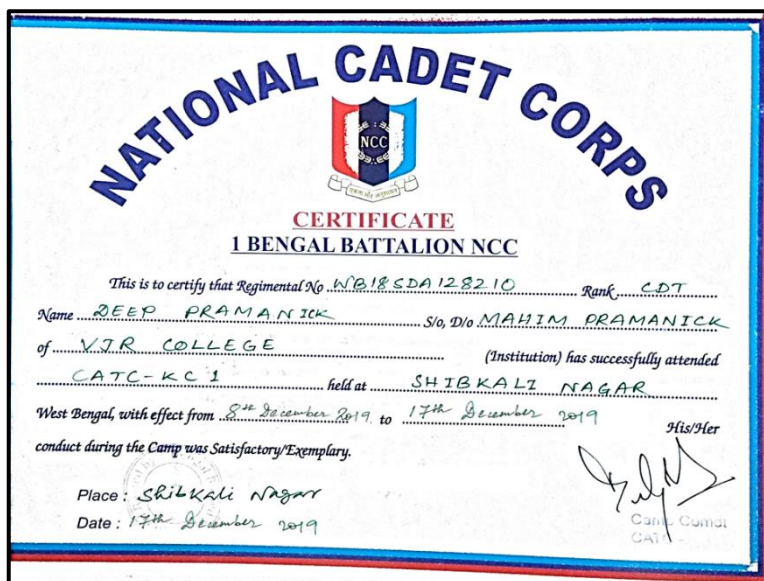 NATIONAL CADET CORPS
NCC
एकता और अनुशासन
CERTIFICATE
1 BENGAL BATTALION NCC
This is to certify that Regimental No WB18SDA128210 Rank CDT
Name DEEP PRAMANICK S/o, D/o MAHIM PRAMANICK
of VJR COLLEGE (Institution) has successfully attended
CATC-KC1 held at SHIBKALI NAGAR
West Bengal, with effect from 8th December 2019 to 17th December 2019 His/Her
conduct during the Camp was Satisfactory/Exemplary.
Place : Shibkali Nagar
Date : 17th December 2019
Camp Comdt
CATC -